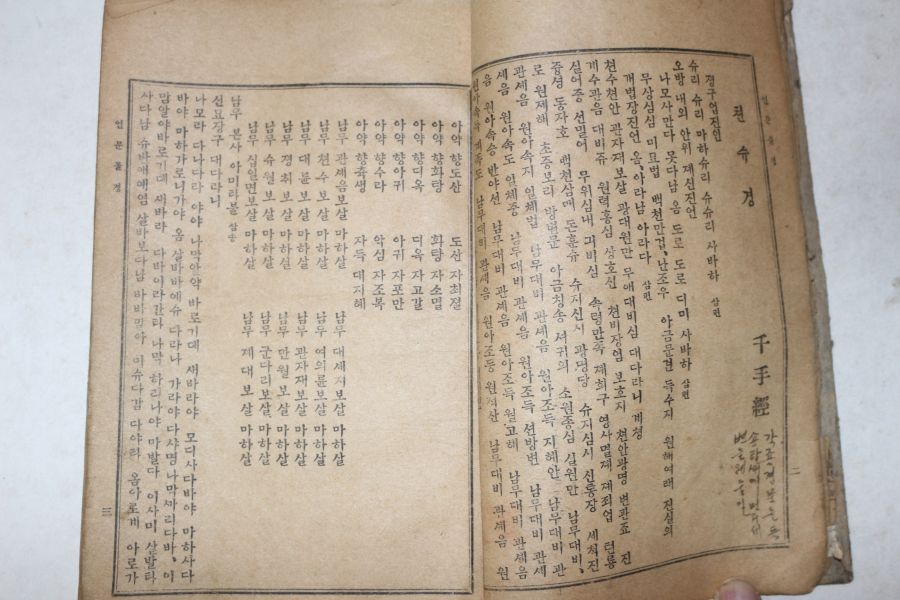 천슈경
千手經
졍구업진언
슈리 슈리 마하슈리 슈슈리 사바하 삼편
오방 내외 안위 제신진언
나모사만다 못다남 옴 도로 도로 디미 사바하 삼편
무상심심 미묘법 백천만겁 난조우 아금문견 득수지 원해여래 진실의
개법장진언 옴아라남 아라다 삼편
쳔수쳔안 관자재 보살 광대원만 무애대비심 대다라니 계쳥
개수관음 대비쥬 원력홍심 상호신 쳔비장엄 보호지 쳔안광명 변관죠 진
실어즁 선밀어 무위심내 긔비심 속령만족 제희구 영사멸제 제죄업 텬룡
즁셩 동자호 백쳔삼매 돈훈슈 슈지신시 광명당 슈지심시 신룡장 세쳑진
로 원제해 초증보리 방변문 아금칭송 셔귀의 소원종심 실원만 남무대비
관세음 원아속지 일체법 남무대비 관세음 원아조득 지혜안 남무대비 관
세음 원아속도 일체즁 남무대비 관세음 원아조득 션방변 남무대비 관세
음 원아속승 반야선 남무대비 관세음 원아조득 월고해 남무대비 관세음
二
언문불경
아약 향도산 도산 자최졀
아약 향화탕 화탕 자소멸
아약 향디옥 디옥 자고갈
아약 향아귀 아귀 자포만
아약 향수라 악심 자조복
아약 향츅생 자득 대지혜
남무 관세음보살 마하살 남무 대세지보살 마하살
남무 쳔수보살 마하살 남무 여의륜보살 마하살
남무 대륜보살 마하살 남무 관자재보살 마하살
남무 졍취보살 마하살 남무 만월보살 마하살
남무 슈월보살 마하살 남무 군다리보살 마하살
남무 십일면보살 마하살 남무 제대보살 마하살
남무 본사 아미타불 삼송
신묘장구 대다라니
나모라 다나다라 야야 나막알약 바로기데 새바라야 모디사다바야 마하사다
바야 마하가로니가야 옴 살바바예슈 다라나 가라야 다사명 나막세리다바 이
맘알야바로기데 새바라 다바이라간타 나막 하리나야 마발다 이사미 살발타
사다남 슈바애예염 살바보다남 바바말아 미슈다감 다냐타 옴아로계 아로가
三
언문불경